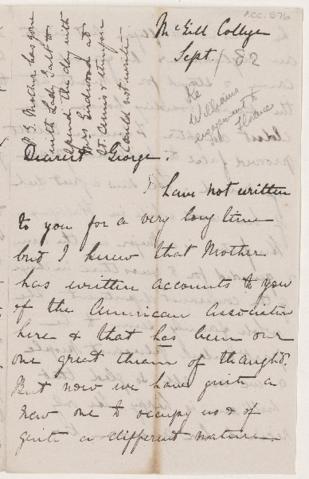 ACC. 876
McGill College
Sept. / 82
P.S. Mother has gone
with Lady Galt to
spend the day with
Mrs Redwood at
St. Annes &
could not write
Re
William's
engagement to
Dearest George.
I have not written
to you for a very long time
but I knew that Mother
has written accounts to you
of the American Association
here & that has been our
one great theme of thought.
But now we have quite a
new one to occupy us & of
quite a different nature.